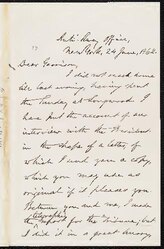 Anti-Slavery Office,
New York, 24 June, 1862.
Dear Garrison,
I did not reach home
till last evening, having spent
the Sunday at Longwood. I
have put the account of our
interview with the President
in the shape of a letter, of
which I send you a copy
which you may use as
original if it pleases you.
Between you and me, I made
for the Tribune, but
I did it in a great hurry,